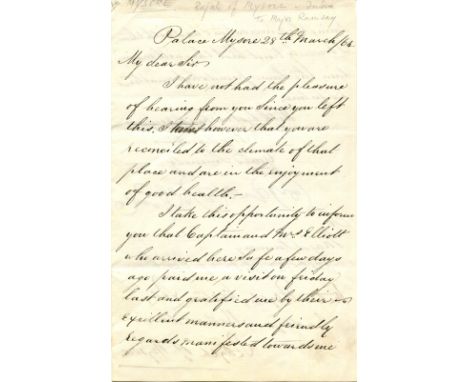 MYSORE Rajah of Mysore
to Major Ramsay
Palace Mysore 28th March/64
My dear Sir
I have not had the pleasure
of hearing from you since you left
this, I trust however that you are
reconciled to the climate of that
place and are in the enjoyment
of good health.—
I take this opportunity to inform
you that Captain and Mrs Elliott
who arrived here safe a few days
ago paid me a visit on Friday
last and gratified me by their
excellent manners and friendly
regards manifested towards me